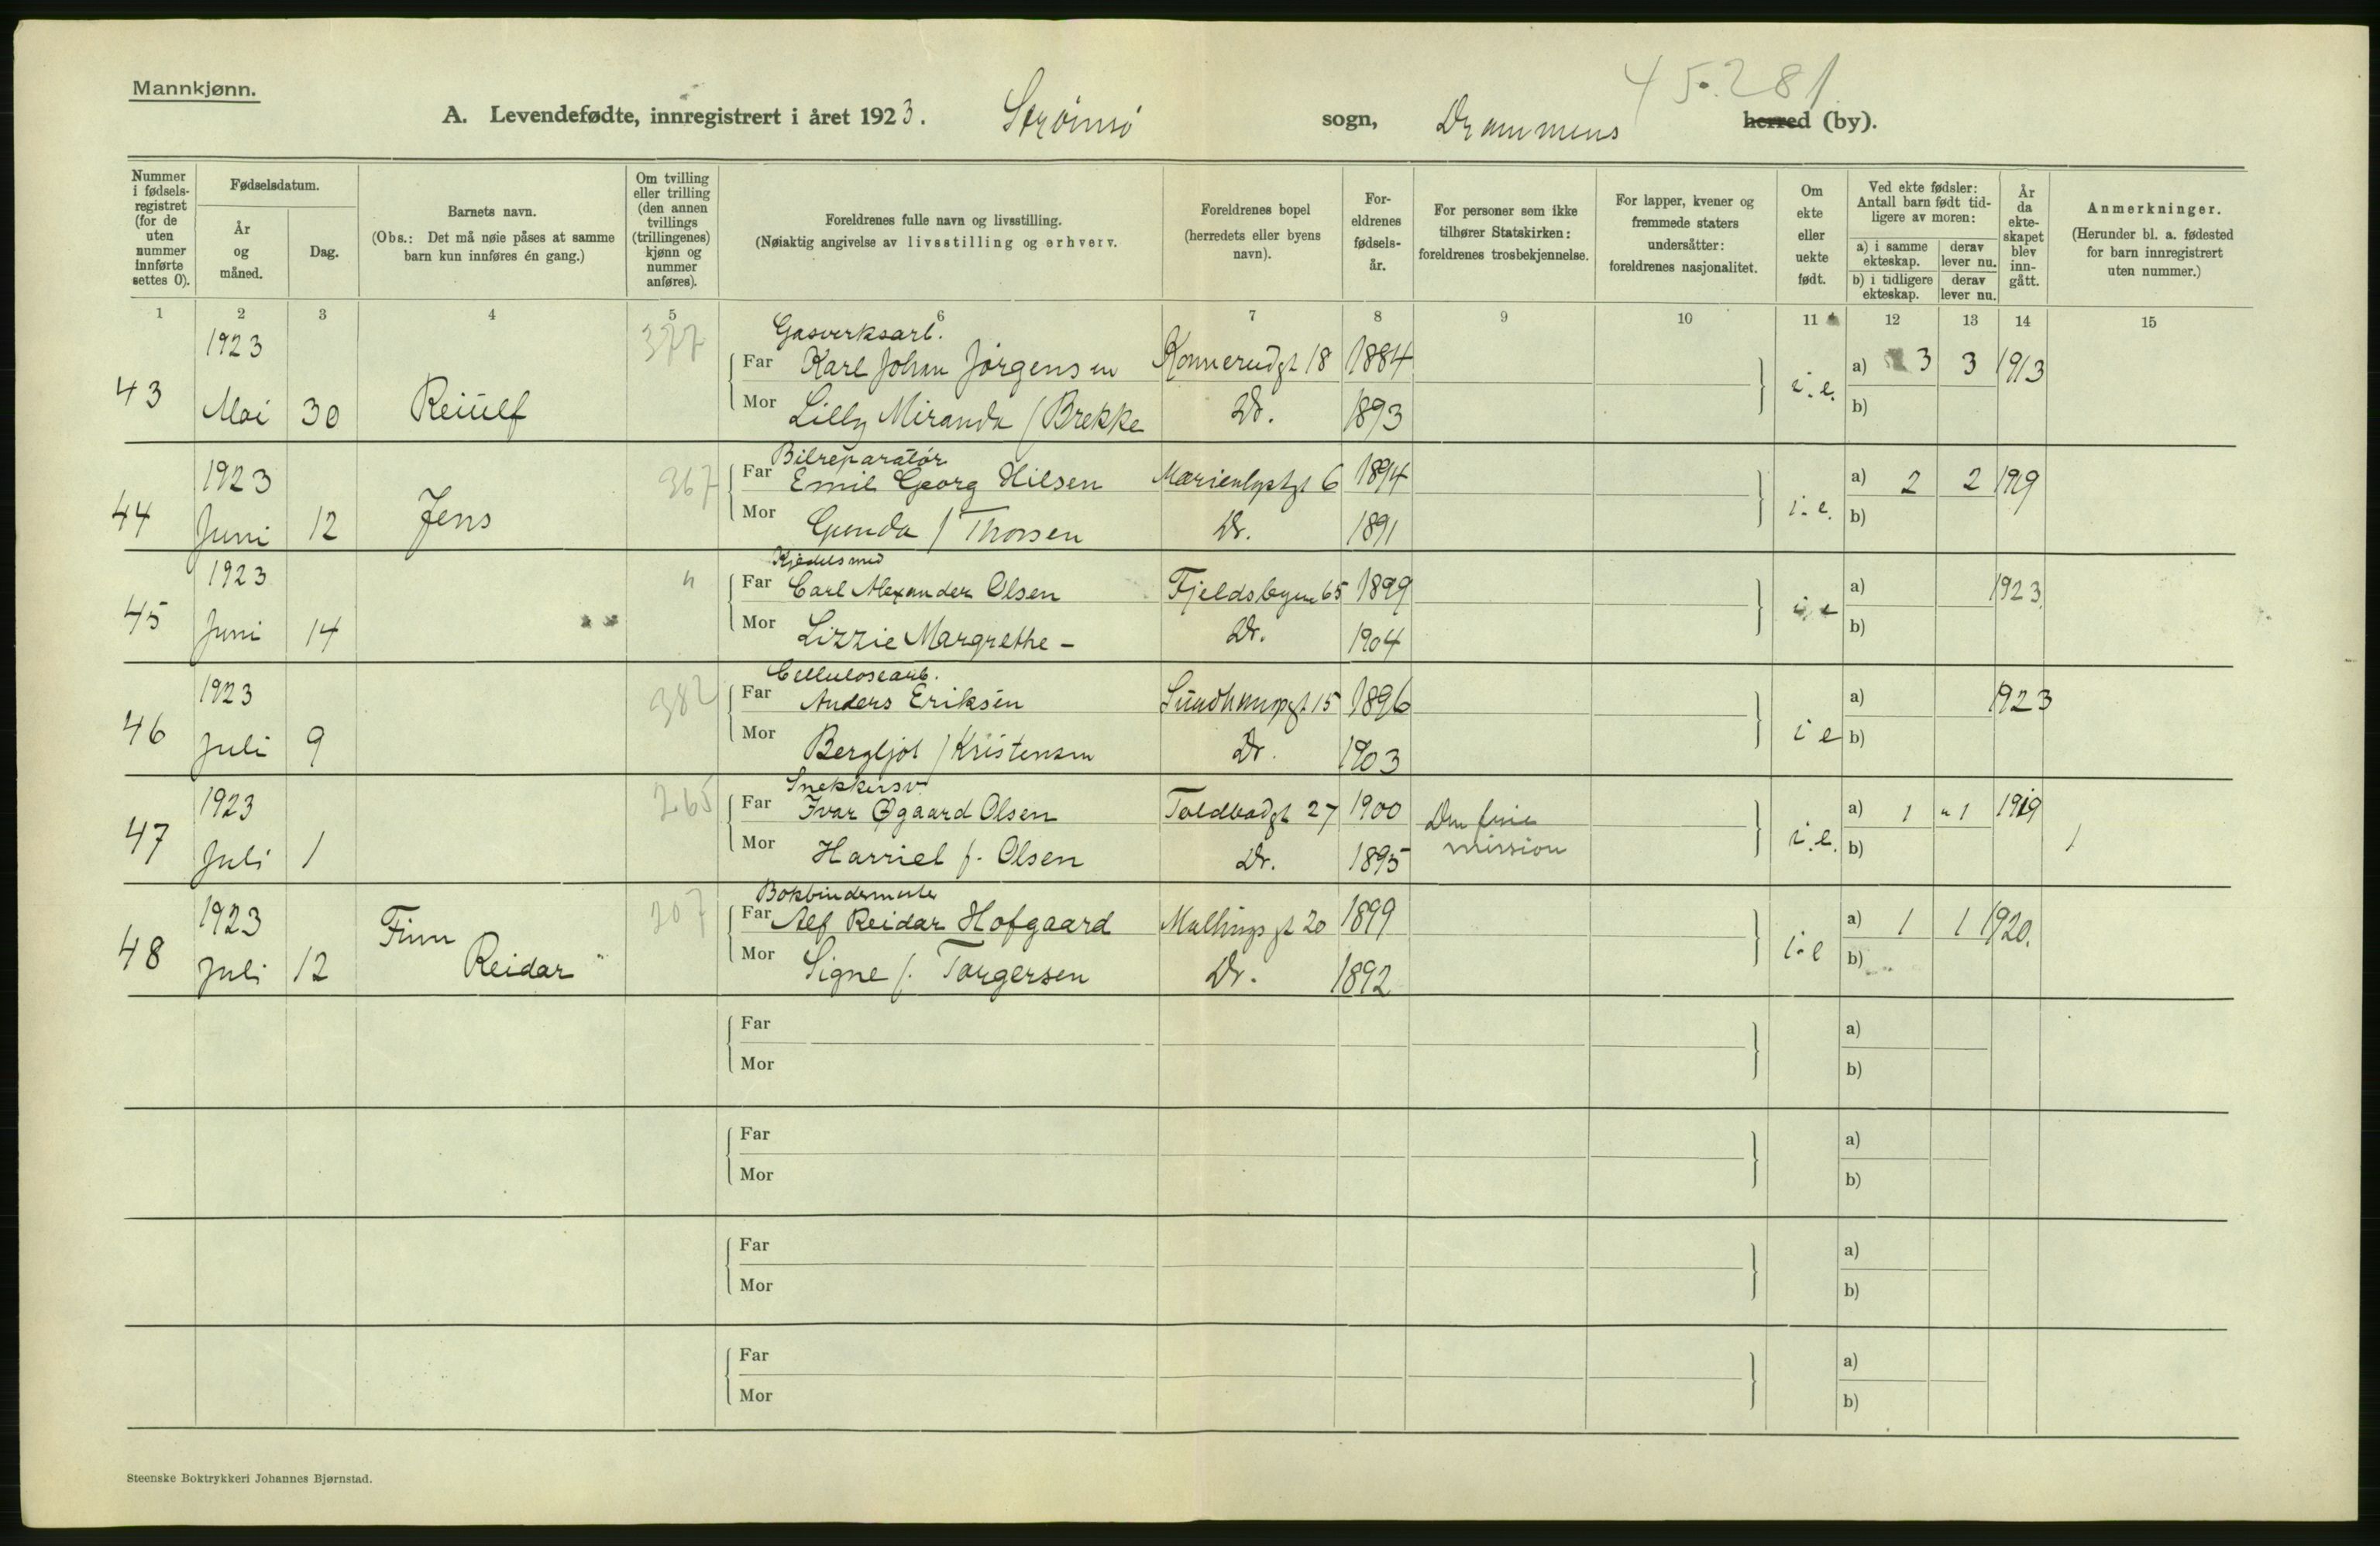 Mannkjønn.
45.281
A. Levendefødte, innregistrert i året 1923. Strømsø sogn, Drammens herred (by).
Nummer i fødselsregistret (for de uten nummer innførte settes 0).
Fødselsdatum.
År og måned.
Dag.
Barnets navn.
(Obs.: Det må nøie påses at samme barn kun innføres én gang.)
Om tvilling eller trilling (den annen tvillings (trillingenes) kjønn og nummer anføres).
Foreldrenes fulle navn og livsstilling.
(Nøiaktig angivelse av livsstilling og erhverv.
Foreldrenes bopel (herredets eller byens navn).
Foreldrenes fødselsår.
For personer som ikke tilhører Statskirken: foreldrenes trosbekjennelse.
For lapper, kvener og fremmede staters undersåtter: foreldrenes nasjonalitet.
Om ekte eller uekte født.
Ved ekte fødsler: Antall barn født tidligere av moren:
a) i samme ekteskap. derav lever nu.
b) i tidligere ekteskap. derav lever nu.
År da ekteskapet blev inngått.
Anmerkninger.
(Herunder bl. a. fødested for barn innregistrert uten nummer.)
1 2 3 4 5 6 7 8 9 10 11 12 13 14 15
1923 377 Gasverksarb.
Far Karl Johan Jørgensen Konnerudgt 18 1884 a) 3 3 1913
43 Mai 30 Reiulf i.e.
Mor Lilly Miranda / Brekke Dr. 1893 b)
1923 367 Bilreparatør
Far Emil Georg Hilsen Marienlystgt 6 1894 a) 2 2 1919
44 Juni 12 Jens i.e.
Mor Gunda / Thorsen Dr. 1891 b)
1923 " Kjedelsmed
Far Carl Alexander Olsen Fjeldsbyen 65 1899 a) 1923
45 Juni 14 i e
Mor Lizzie Margrethe - Dr. 1904 b)
1923 382 Cellulosearb.
Far Anders Eriksen Sundhauggt 15 1896 a) 1923
46 Juli 9 i e
Mor Bergljot / Kristensen Dr. 1903 b)
1923 265 Snekkersv.
Far Ivar Øgaard Olsen Toldbodgt 27 1900 Den frie mission a) 1 " 1 1919
47 Juli 1 i.e.
Mor Harriet f. Olsen Dr. 1895 b)
1923 207 Bokbindermester
Far Alf Reidar Hofgaard Mallings gt 20 1899 a) 1 1 1920.
48 Juli 12 Finn Reidar i.e
Mor Signe f. Torgersen Dr. 1892 b)
Far a)
Mor b)
Far a)
Mor b)
Far a)
Mor b)
Far a)
Mor b)
Steenske Boktrykkeri Johannes Bjørnstad.